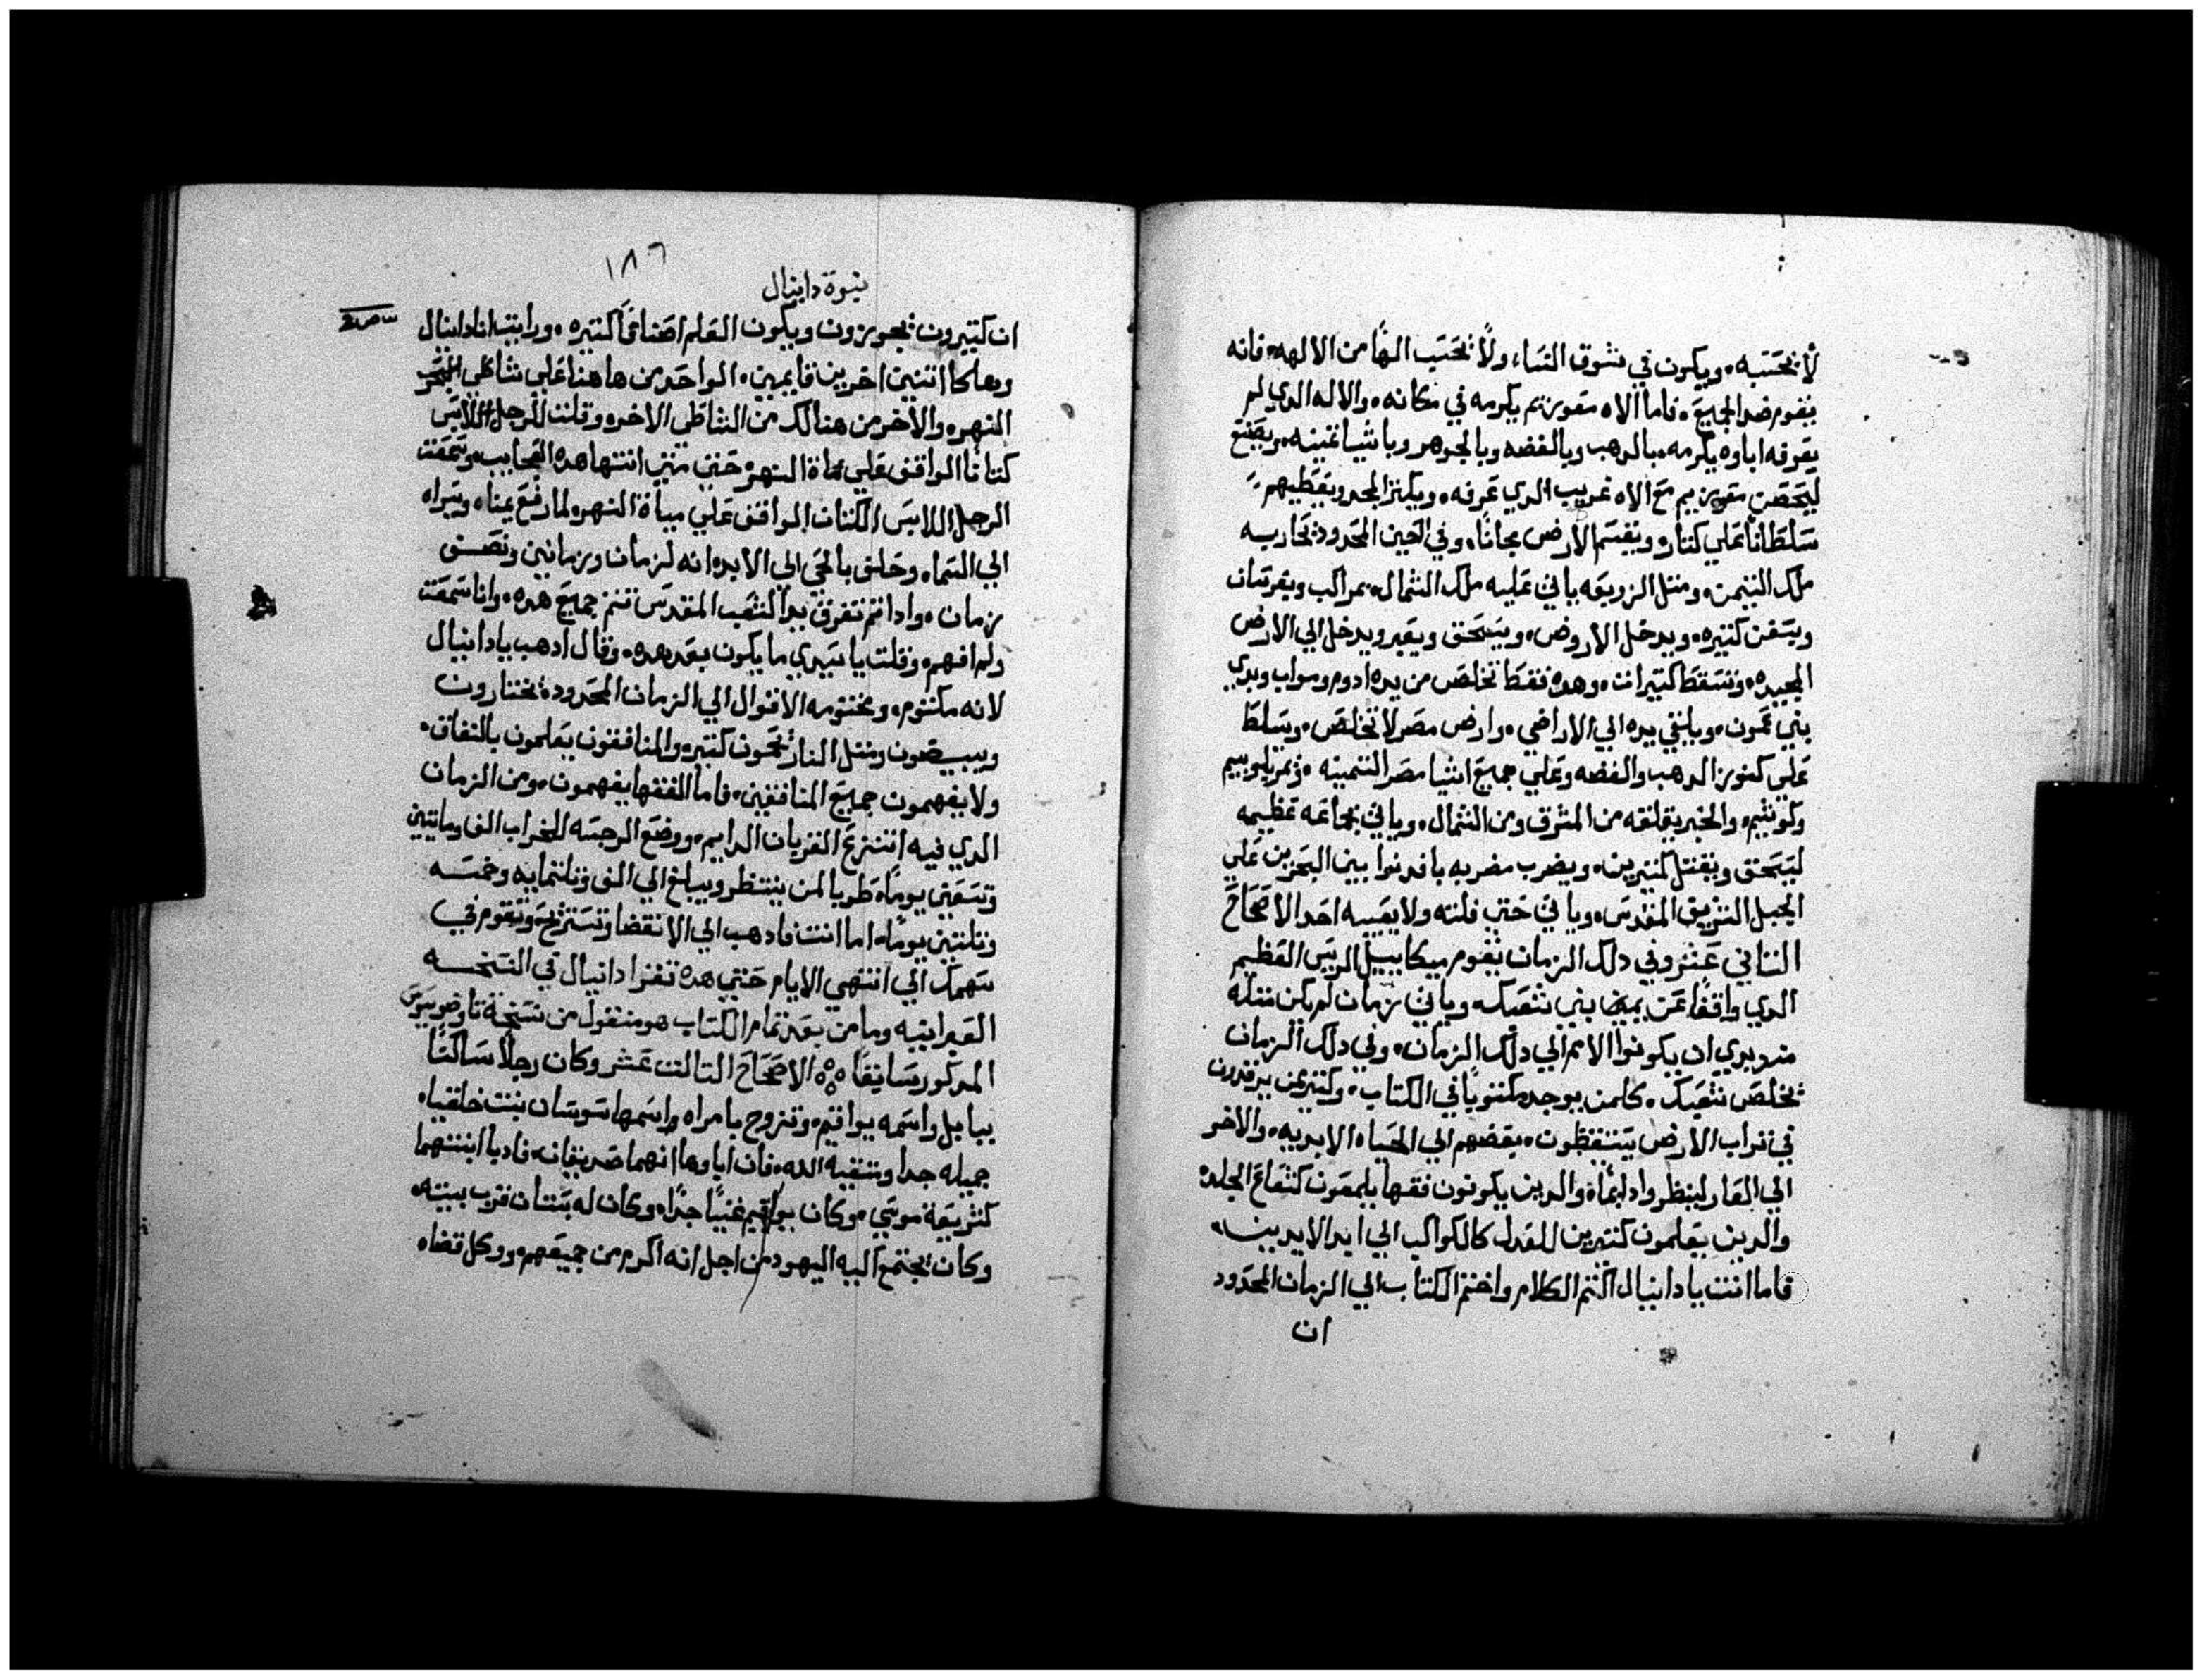 لا يحتسبه، ويكون في شوق النساء، ولا يحتسب الهًا من الالهه، فانه
يقوم ضد الجميع، فاما الاه معوزيم يكرمه في مكانه، والاله الدي لم
يعرفه اباوه يكرمه، بالدهب وبالفضه وبالجوهر وباشيا غنيه، ويصنع
ليحصن معوزيم مع الاه غريب الدي عرفه، ويكنز المجد ويعطيهم
سلطانًا علي كتار، ويقسم الارض مجانًا، وفي الحين المحدود يحاربه
ملك التيمن، ومتل الزوبعه ياتي عليه ملك الشمال، بمراكب وبفرسان
وبسفن كتيره، ويدخل الاروض، ويسحق ويعبر ويدخل الي الارض
المجيده، وتسقط كتيرات، وهده فقط تخلص من يده ادوم ومواب وبدي
بني عمون، ويلقي يده الي الاراضي، وارض مصر لا تخلص، ويسلط
علي كنوز الدهب والفضه وعلي جميع اشيا مصر التمينه، وبمر ليوبييم
وكوشيم، والخبر يقلقه من المشرق ومن الشمال، وياتي بجماعه عظيمه
ليسحق ويقتل كتيرين، ويضرب مضربه بافدنوا بين البحرين علي
الجبل الشريق المقدس، وياتي حتي قلته ولا يعينه احد الاصحاح
التاني عشر وفي دلك الزمان يقوم ميكاييل الريس العظيم
الدي واقفًا عن يمين بني شعبك، وياتي زمان لم يكن متله
مند بدي ان يكونوا الامم الي دلك الزمان، وفي دلك الزمان
يخلص شعبك، كلمن يوجد مكتوبًا في الكتاب، وكتير من يرقدون
في تراب الارض يستيقظون، بعضهم الي الحياه الابديه، والاخر
الي العار لينظروا دايمًا، والدين يكونون فقها يلمعون كشعاع الجلد،
والدين يعلمون كتيرين للعدل كالكواكب الي ابد الابدين،
فاما انت يا دانيال اكتم الكلام واختم الكتاب الي الزمان المحدود
ان
١٨٦
نبوة دانيال
ان كتيرون يجوزون ويكون العلم اصنافًا كتيره، ورايت انا دانيال
وهاكا اتنين اخرين قايمين، الواحد من هاهنا علي شاطي
النهر، والاخر من هنالك من الشاطي الاخر، وقلت للرجل اللابس
كتانًا الواقف علي مياة النهر، حتي متي انتها هده العجايب، وسمعت
الرجل اللابس الكتان الواقف علي مياة النهر، لما رفع يمناه ويسراه
الي السما، وحلف بالحي الي الابد، انه لزمان وزمانين ونصف
زمان، وادا تم تفرق يد الشعب المقدس تتم جميع هده، وانا سمعت
ولم افهم، وقلت يا سيدي ما يكون بعد هده، وقال ادهب يا دانيال
لانه مكتوم، ومختومه الاقوال الي الزمان المحدود، يختارون
ويبيضون ومتل النار يمحون كتير، والمنافقون يعلمون بالنفاق،
ولا يفهمون جميع المنافقين، فاما الفقها يفهمون، ومن الزمان
الدي فيه انتزع القربان الدايم، ووضع الرجسه للخراب الف وماتين
وتسعين يومًا، طوبا لمن ينتظر ويبلغ الي الف وتلتمايه وخمسه
وتلتين يومًا، اما انت فادهب الي الانقضا وتستريح وتقوم في
سهمك الي انتهي الايام حتي هده تقرا دانيال في النسخه
العبرانيه وما من بعد تمام الكتاب هو منقول من نسخة تاوضوسيوس
المدكور سابقًا ۞ الاصحاح التالت عشر وكان رجلًا ساكنًا
ببابل واسمه يواقيم، وتزوج بامراه واسمها سوسان بنت خلقيا،
جميله جدا ومتقيه الله، فان اباوها انهما صديقان، فادبا ابنتهما
كشريعة موسي، وكان يواقيم غنيًا جدًا، وكان له بستان قرب بيته،
وكان يجتمع اليه اليهود من اجل انه اكرم من جميعهم، ووكل قضاه